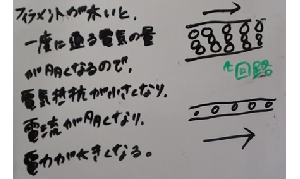 フィラメントが太いと、
一度に通る電気の量
が多くなるので、
電気抵抗が小さくなり、
電流が多くなり、
電力が大きくなる。
回路